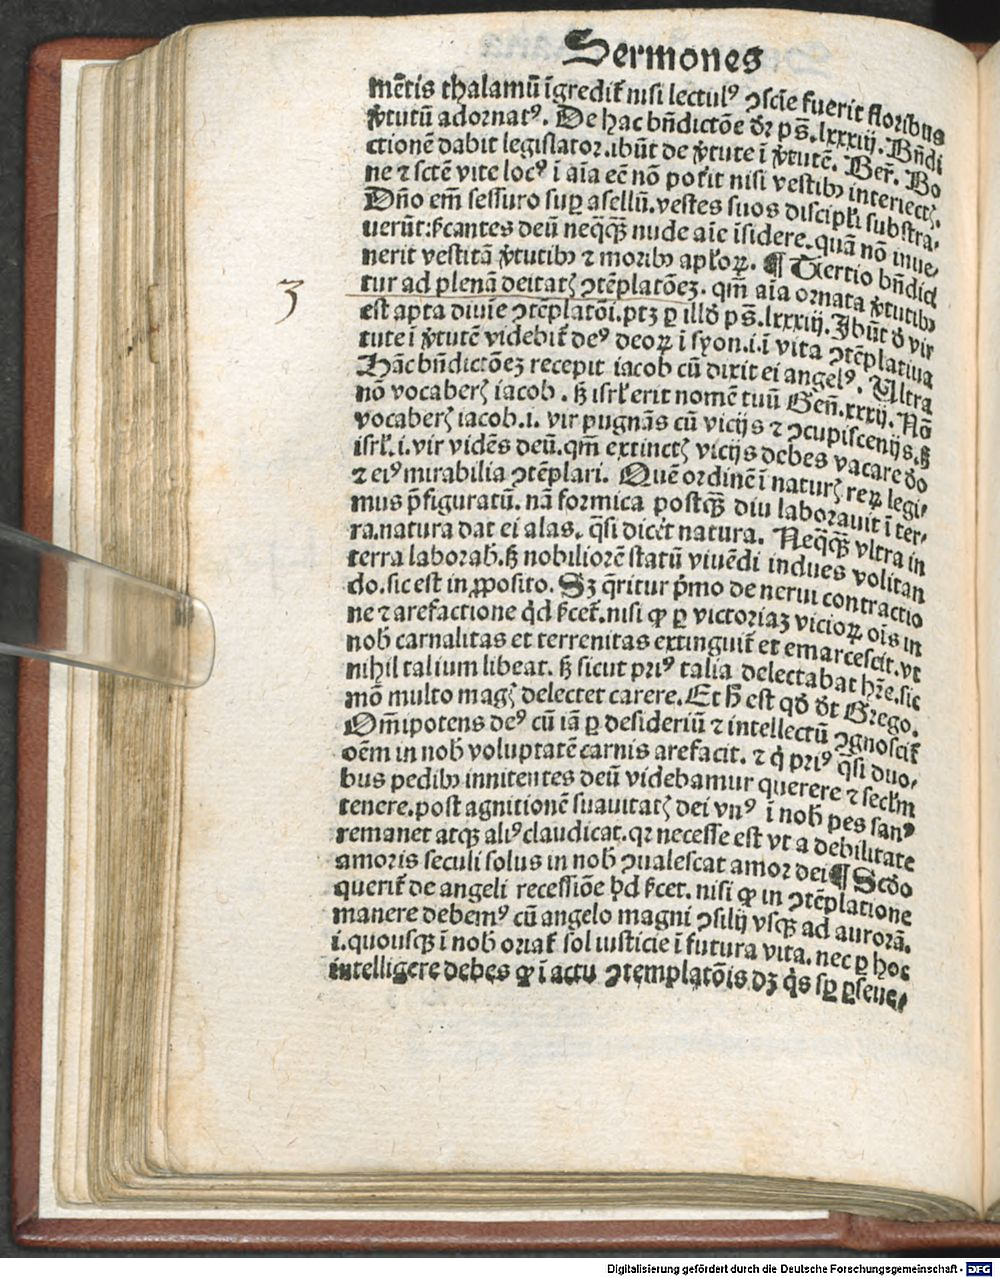 Sermones
mētis thalamū īgredit̄ nisi lectulꝰ ꝯscīe fuerit floribus
v̄tutū adornatꝰ. De hac bn̄dictōe dr̄ ps̄. lxxxiij. Bn̄di
ctionē dabit legislator. ibūt de v̄tute ī v̄tutē. Ber̄. Bo
ne ⁊ sctē vite locꝰ ī aīa eē nō pot̄it nisi vestibꝫ interiectꝭ.
Dn̄o em̄ sessuro suꝑ asellū. vestes suos discipl̓i substra-
uerūt: s̄icantes deū neq̄q̄ꝫ nude aīe īsidere. quā nō inue-
nerit vestitā v̄tutibꝫ ⁊ moribꝫ apl̓oꝝ. ¶ Tertio bn̄dici
3
tur ad plenā deitatꝭ ꝯtēplatōeꝫ. qm̄ aīa ornata v̄tutibꝫ
est apta diuīe ꝯtēplatōi. ptꝫ ꝑ illđ ps̄. lxxxiij. Ibūt đ vir
tute ī v̄tutē videbit̄ deꝰ deoꝝ ī syon. i. ī vita ꝯtēplatiua
Hāc bn̄dictōeꝫ recepit iacob cū dixit ei angelꝰ. Ultra
nō vocaberꝭ iacob. sꝫ isrl̓ erit nomē tuū Gen̄. xxxij. Nō
vocaberꝭ iacob. i. vir pugnās cū vicijs ⁊ ꝯcupiscentijs. sꝫ
isrl̓. i. vir vidēs deū. qm̄ extinctꝭ vicijs debes vacare đo
⁊ eiꝰ mirabilia ꝯtēplari. Quē ordinē ī naturꝭ reꝝ legi-
mus p̄figuratū. nā formica postq̄ꝫ diu laborauit ī ter-
ra. natura dat ei alas. q̄si dicēt natura. Neq̄q̄ꝫ vltra in
terra laborab̄. sꝫ nobiliorē statū viuēdi indues volitan
do. sic est in ꝓposito. Sꝫ q̄ritur p̄mo de nerui contractio
ne ⁊ arefactione q̇d s̄icet̄. nisi ꝙ ꝑ victoriaꝫ vicioꝝ oīs in
nob̄ carnalitas et terrenitas extinguit̄ et emarcescit. vt
nihil talium libeat. sꝫ sicut priꝰ talia delectabat hr̄e. sic
mō multo magꝭ delectet carere. Et h̄ est qđ đt Grego.
Om̄ipotens deꝰ cū iā ꝑ desideriū ⁊ intellectū ꝯgnoscit̄
oēm in nob̄ voluptatē carnis arefacit. ⁊ q̇ priꝰ q̄si duo-
bus pedibꝫ innitentes deū videbamur querere ⁊ secl̓m
tenere. post agnitionē suauitatꝭ dei vnꝰ ī nob̄ pes sanꝰ
remanet atqꝫ aliꝰ claudicat. qꝛ necesse est vt a debilitate
amoris seculi solus in nob̄ ꝯualescat amor dei ¶ Scđo
querit̄ de angeli recessiōe q̇d s̄icet. nisi ꝙ in ꝯtēplatione
manere debemꝰ cū angelo magni ꝯsilij vsqꝫ ad aurorā.
i. quousqꝫ ī nob̄ oriat̄ sol iusticie ī futura vita. nec ꝑ hoc
intelligere debes ꝙ ī actu ꝯtemplatōis đꝫ q̇s sꝑ ꝑseue-
Digitalisierung gefördert durch die Deutsche Forschungsgemeinschaft - DFG